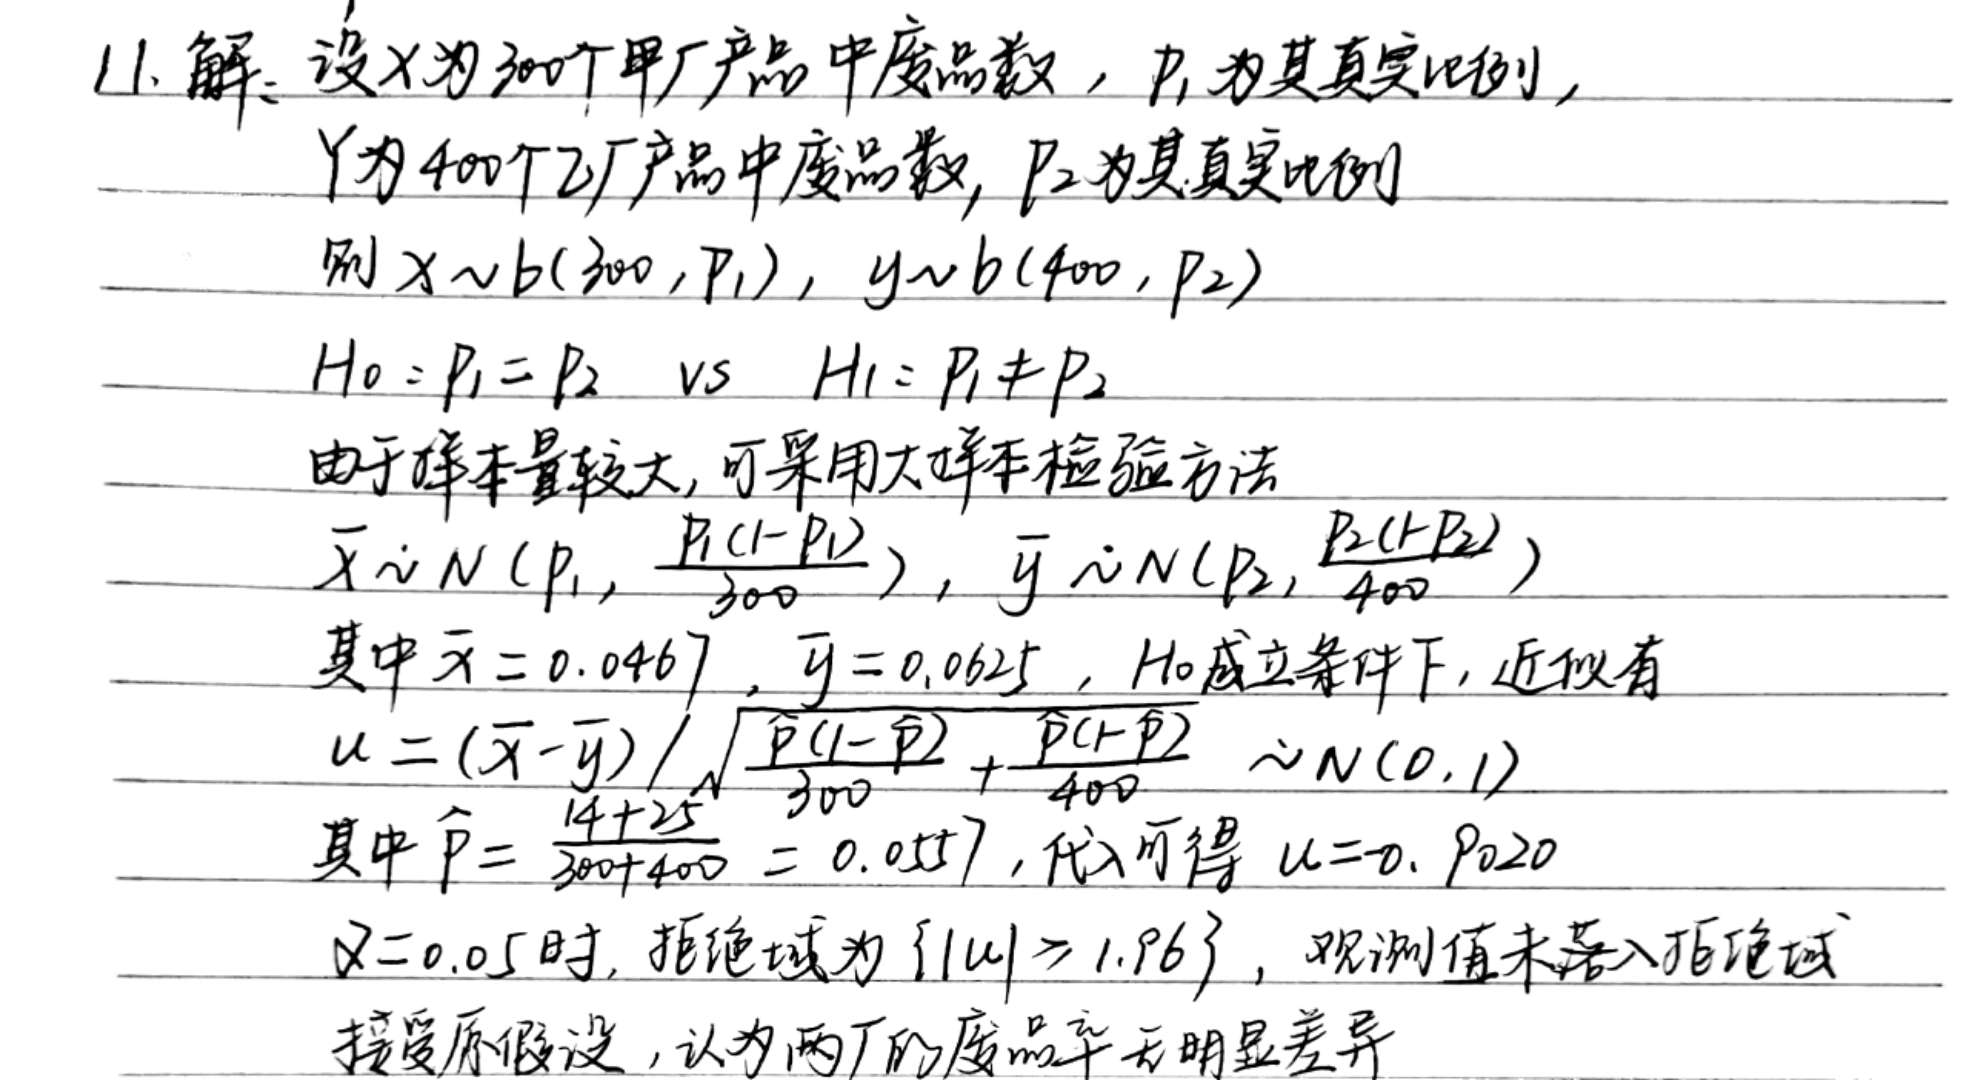 11. 解: 设X为300个甲厂产品中废品数，p₁为其真实比例，
Y为400个乙厂产品中废品数，p₂为其真实比例
则 x~b(300, p₁)，y~b(400, p₂)
H₀: p₁=p₂ vs H₁: p₁≠p₂
由于样本量较大，可采用大样本检验方法
x̄ ∼̇ N(p₁, p₁(1-p₁)/300)，ȳ ∼̇ N(p₂, p₂(1-p₂)/400)
其中 x̄=0.0467，ȳ=0.0625，H₀成立条件下，近似有
u=(x̄-ȳ)/√(p̂(1-p̂)/300 + p̂(1-p̂)/400) ∼̇ N(0,1)
其中 p̂=(14+25)/(300+400)=0.0557，代入可得 u=-0.9020
α=0.05时，拒绝域为{|u|≥1.96}，观测值未落入拒绝域
接受原假设，认为两厂的废品率无明显差异